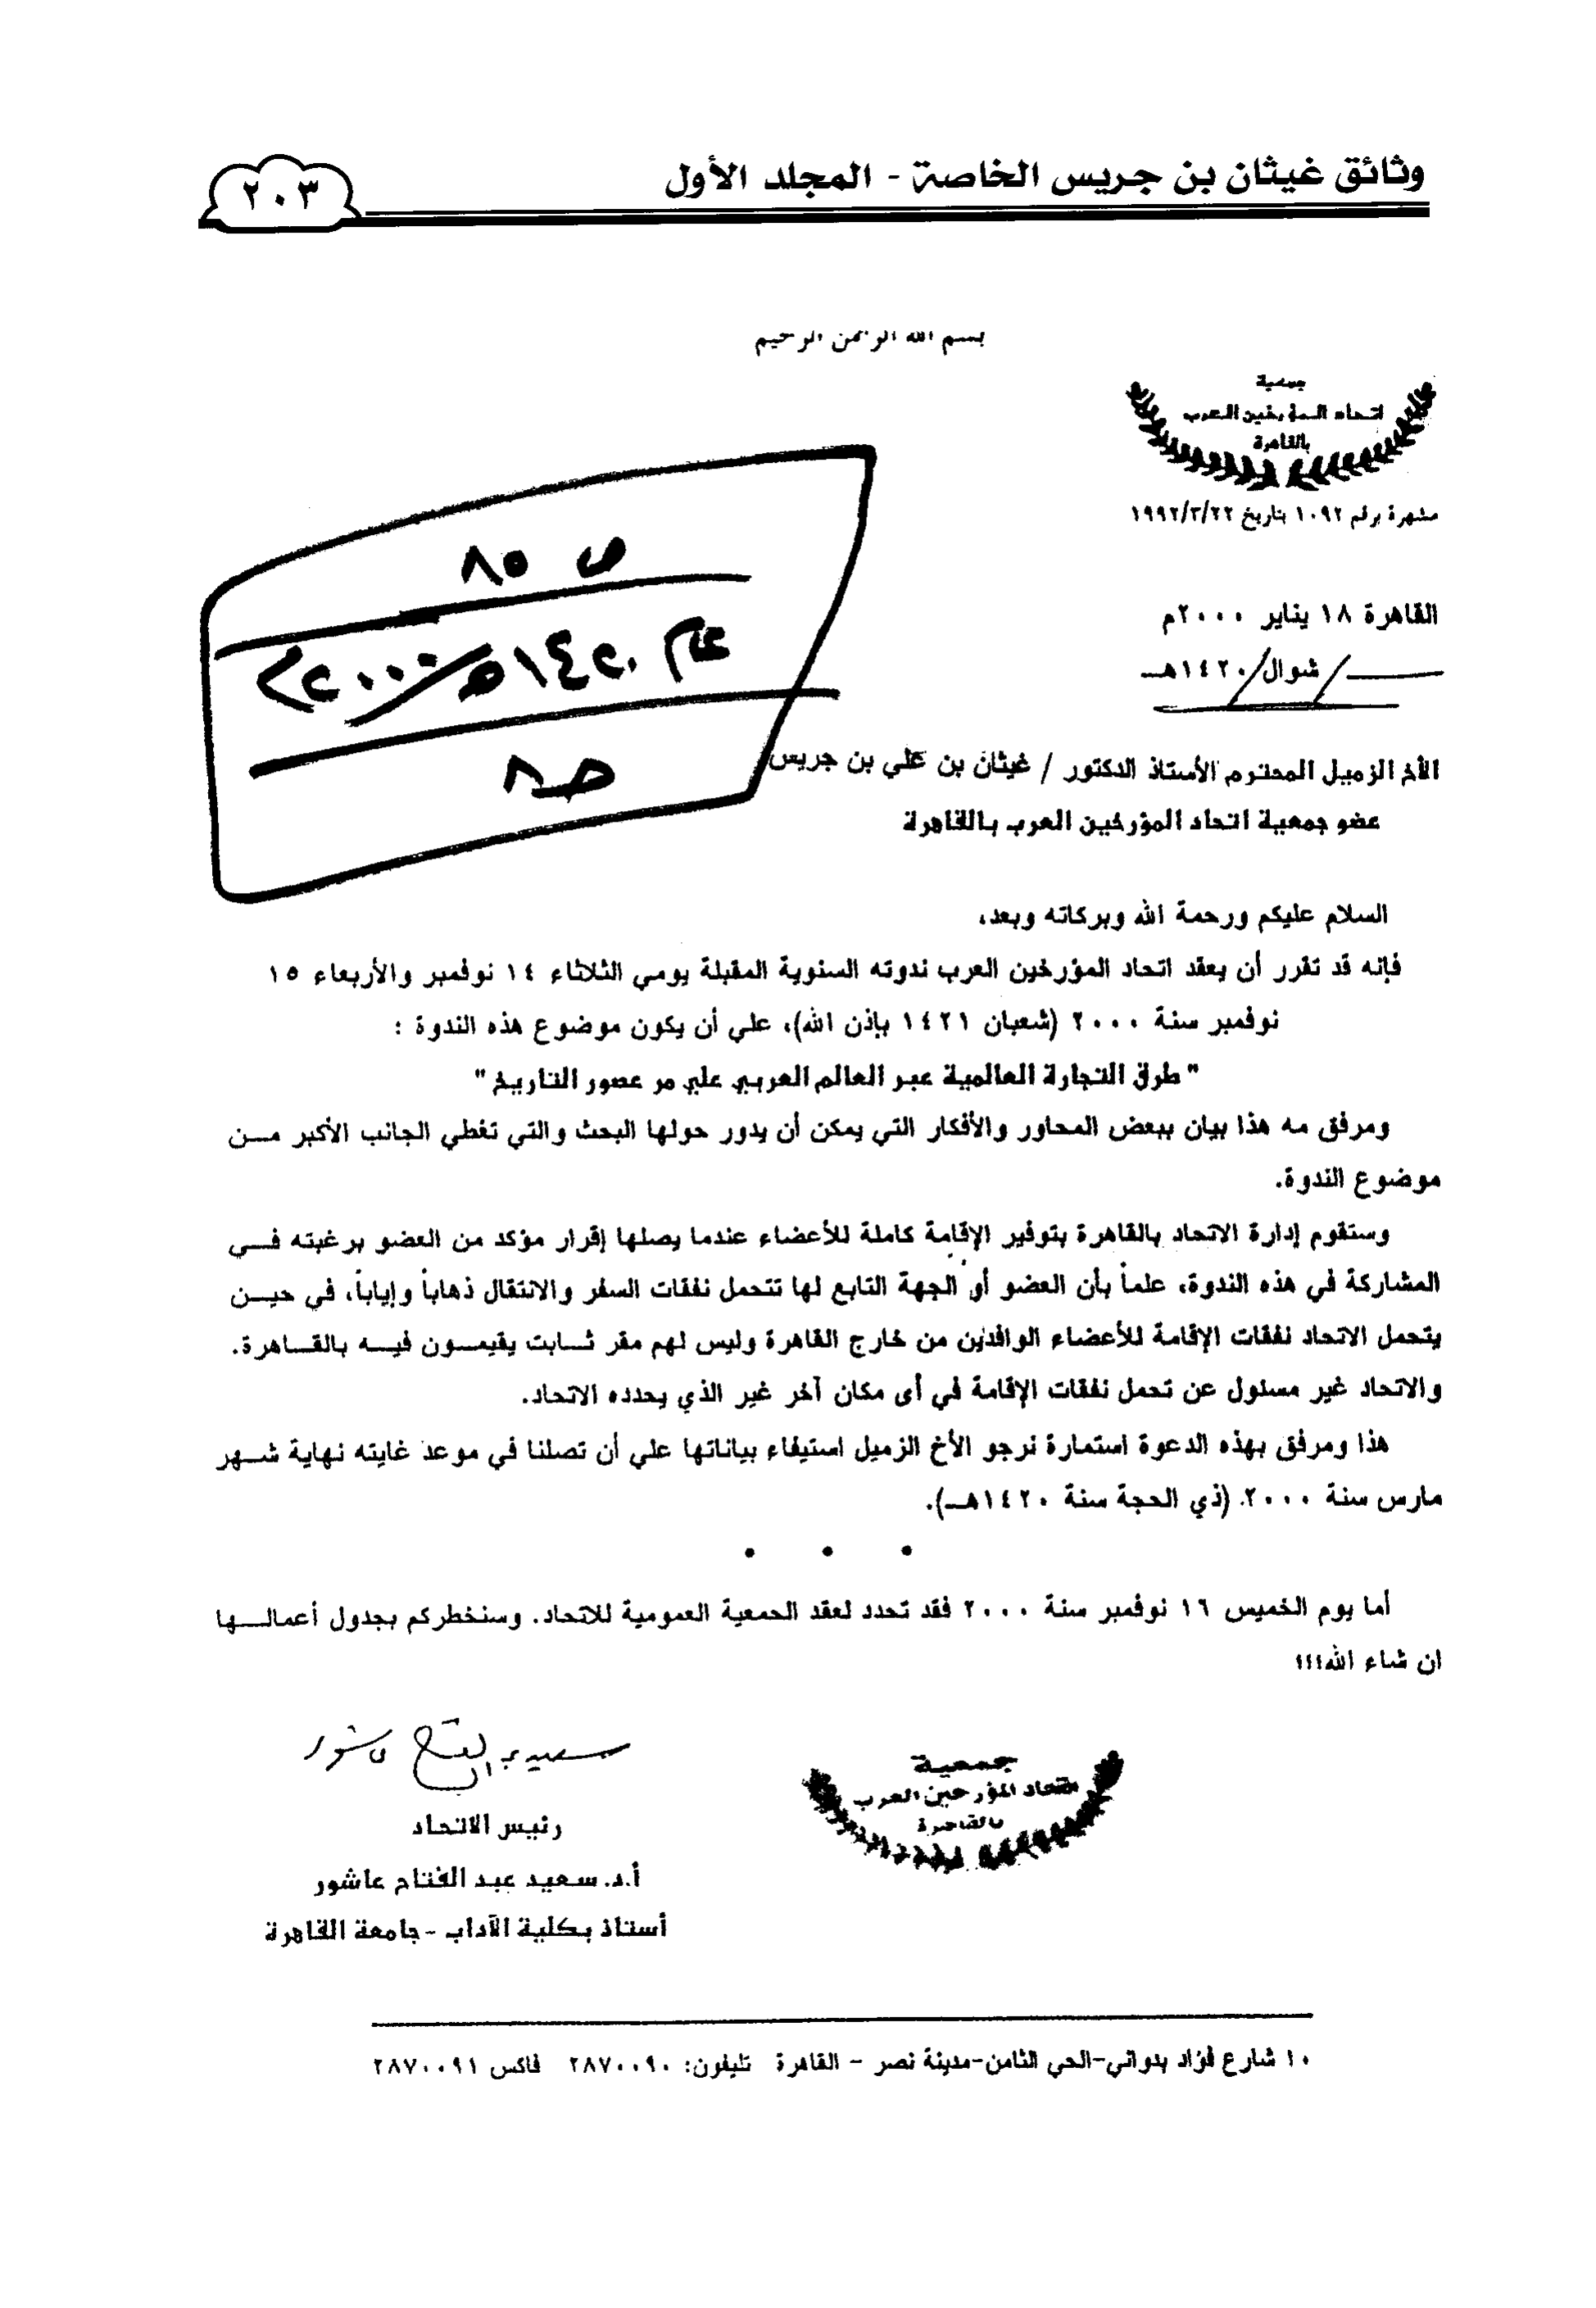 وثائق غيثان بن جريس الخاصة - المجلد الأول
٢٠٣
بسم الله الرحمن الرحيم
جمعية
اتحاد المؤرخين العرب
بالقاهرة
مشهرة برقم ١٠٩٢ بتاريخ ١٩٩٢/٣/٢٢
ص ٨٥
عام ١٤٢٠هـ/٢٠٠٠م
ص٨
القاهرة ١٨ يناير ٢٠٠٠م
/ شوال/ ١٤٢٠هـ
الأخ الزميل المحترم الأستاذ الدكتور / غيثان بن علي بن جريس
عضو جمعية اتحاد المؤرخين العرب بالقاهرة
السلام عليكم ورحمة الله وبركاته وبعد،
فإنه قد تقرر أن يعقد اتحاد المؤرخين العرب ندوته السنوية المقبلة يومي الثلاثاء ١٤ نوفمبر والأربعاء ١٥
نوفمبر سنة ٢٠٠٠ (شعبان ١٤٢١ بإذن الله)، علي أن يكون موضوع هذه الندوة :
" طرق التجارة العالمية عبر العالم العربي علي مر عصور التاريخ "
ومرفق مه هذا بيان ببعض المحاور والأفكار التي يمكن أن يدور حولها البحث والتي تغطي الجانب الأكبر مــن
موضوع الندوة.
وستقوم إدارة الاتحاد بالقاهرة بتوفير الإقامة كاملة للأعضاء عندما يصلها إقرار مؤكد من العضو برغبته فــي
المشاركة في هذه الندوة، علماً بأن العضو أو الجهة التابع لها تتحمل نفقات السفر والانتقال ذهاباً وإياباً، في حيــن
يتحمل الاتحاد نفقات الإقامة للأعضاء الوافدين من خارج القاهرة وليس لهم مقر ثــابت يقيمــون فيــه بالقــاهرة.
والاتحاد غير مسئول عن تحمل نفقات الإقامة في أى مكان آخر غير الذي يحدده الاتحاد.
هذا ومرفق بهذه الدعوة استمارة نرجو الأخ الزميل استيفاء بياناتها علي أن تصلنا في موعد غايته نهاية شــهر
مارس سنة ٢٠٠٠. (ذي الحجة سنة ١٤٢٠هــ).
• • •
أما يوم الخميس ١٦ نوفمبر سنة ٢٠٠٠ فقد تحدد لعقد الجمعية العمومية للاتحاد. وسنخطركم بجدول أعمالــها
ان شاء الله،،،
سعيد عبد الفتاح عاشور
جمعية
اتحاد المؤرخين العرب
بالقاهرة
رئيس الاتحاد
أ.د. سعيد عبد الفتاح عاشور
أستاذ بكلية الآداب - جامعة القاهرة
١٠ شارع فؤاد بدواني-الحي الثامن-مدينة نصر - القاهرة تليفون: ٢٨٧٠٠٩٠ فاكس ٢٨٧٠٠٩١